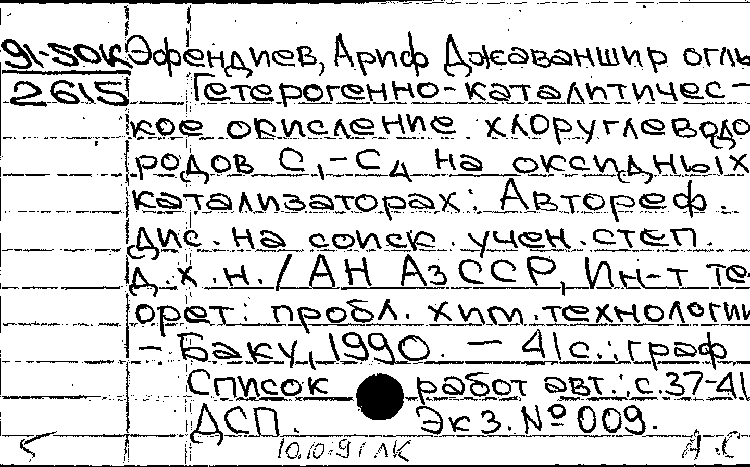 91-5ОК Эфендиев, Ариф Джаваншир оглы
2615 Гетерогенно-каталитичес-
кое окисление хлоруглеводо
родов С1-С4 на оксидных
катализаторах: Автореф.
дис. на соиск. учен. степ.
д.х.н. / АН АзССР, Ин-т те-
орет. пробл. хим. технологии
– Баку, 1990. – 41с.: граф
Список работ авт.: с.37-41
ДСП. Экз. № 009.
10.10.91 ЛК А.С